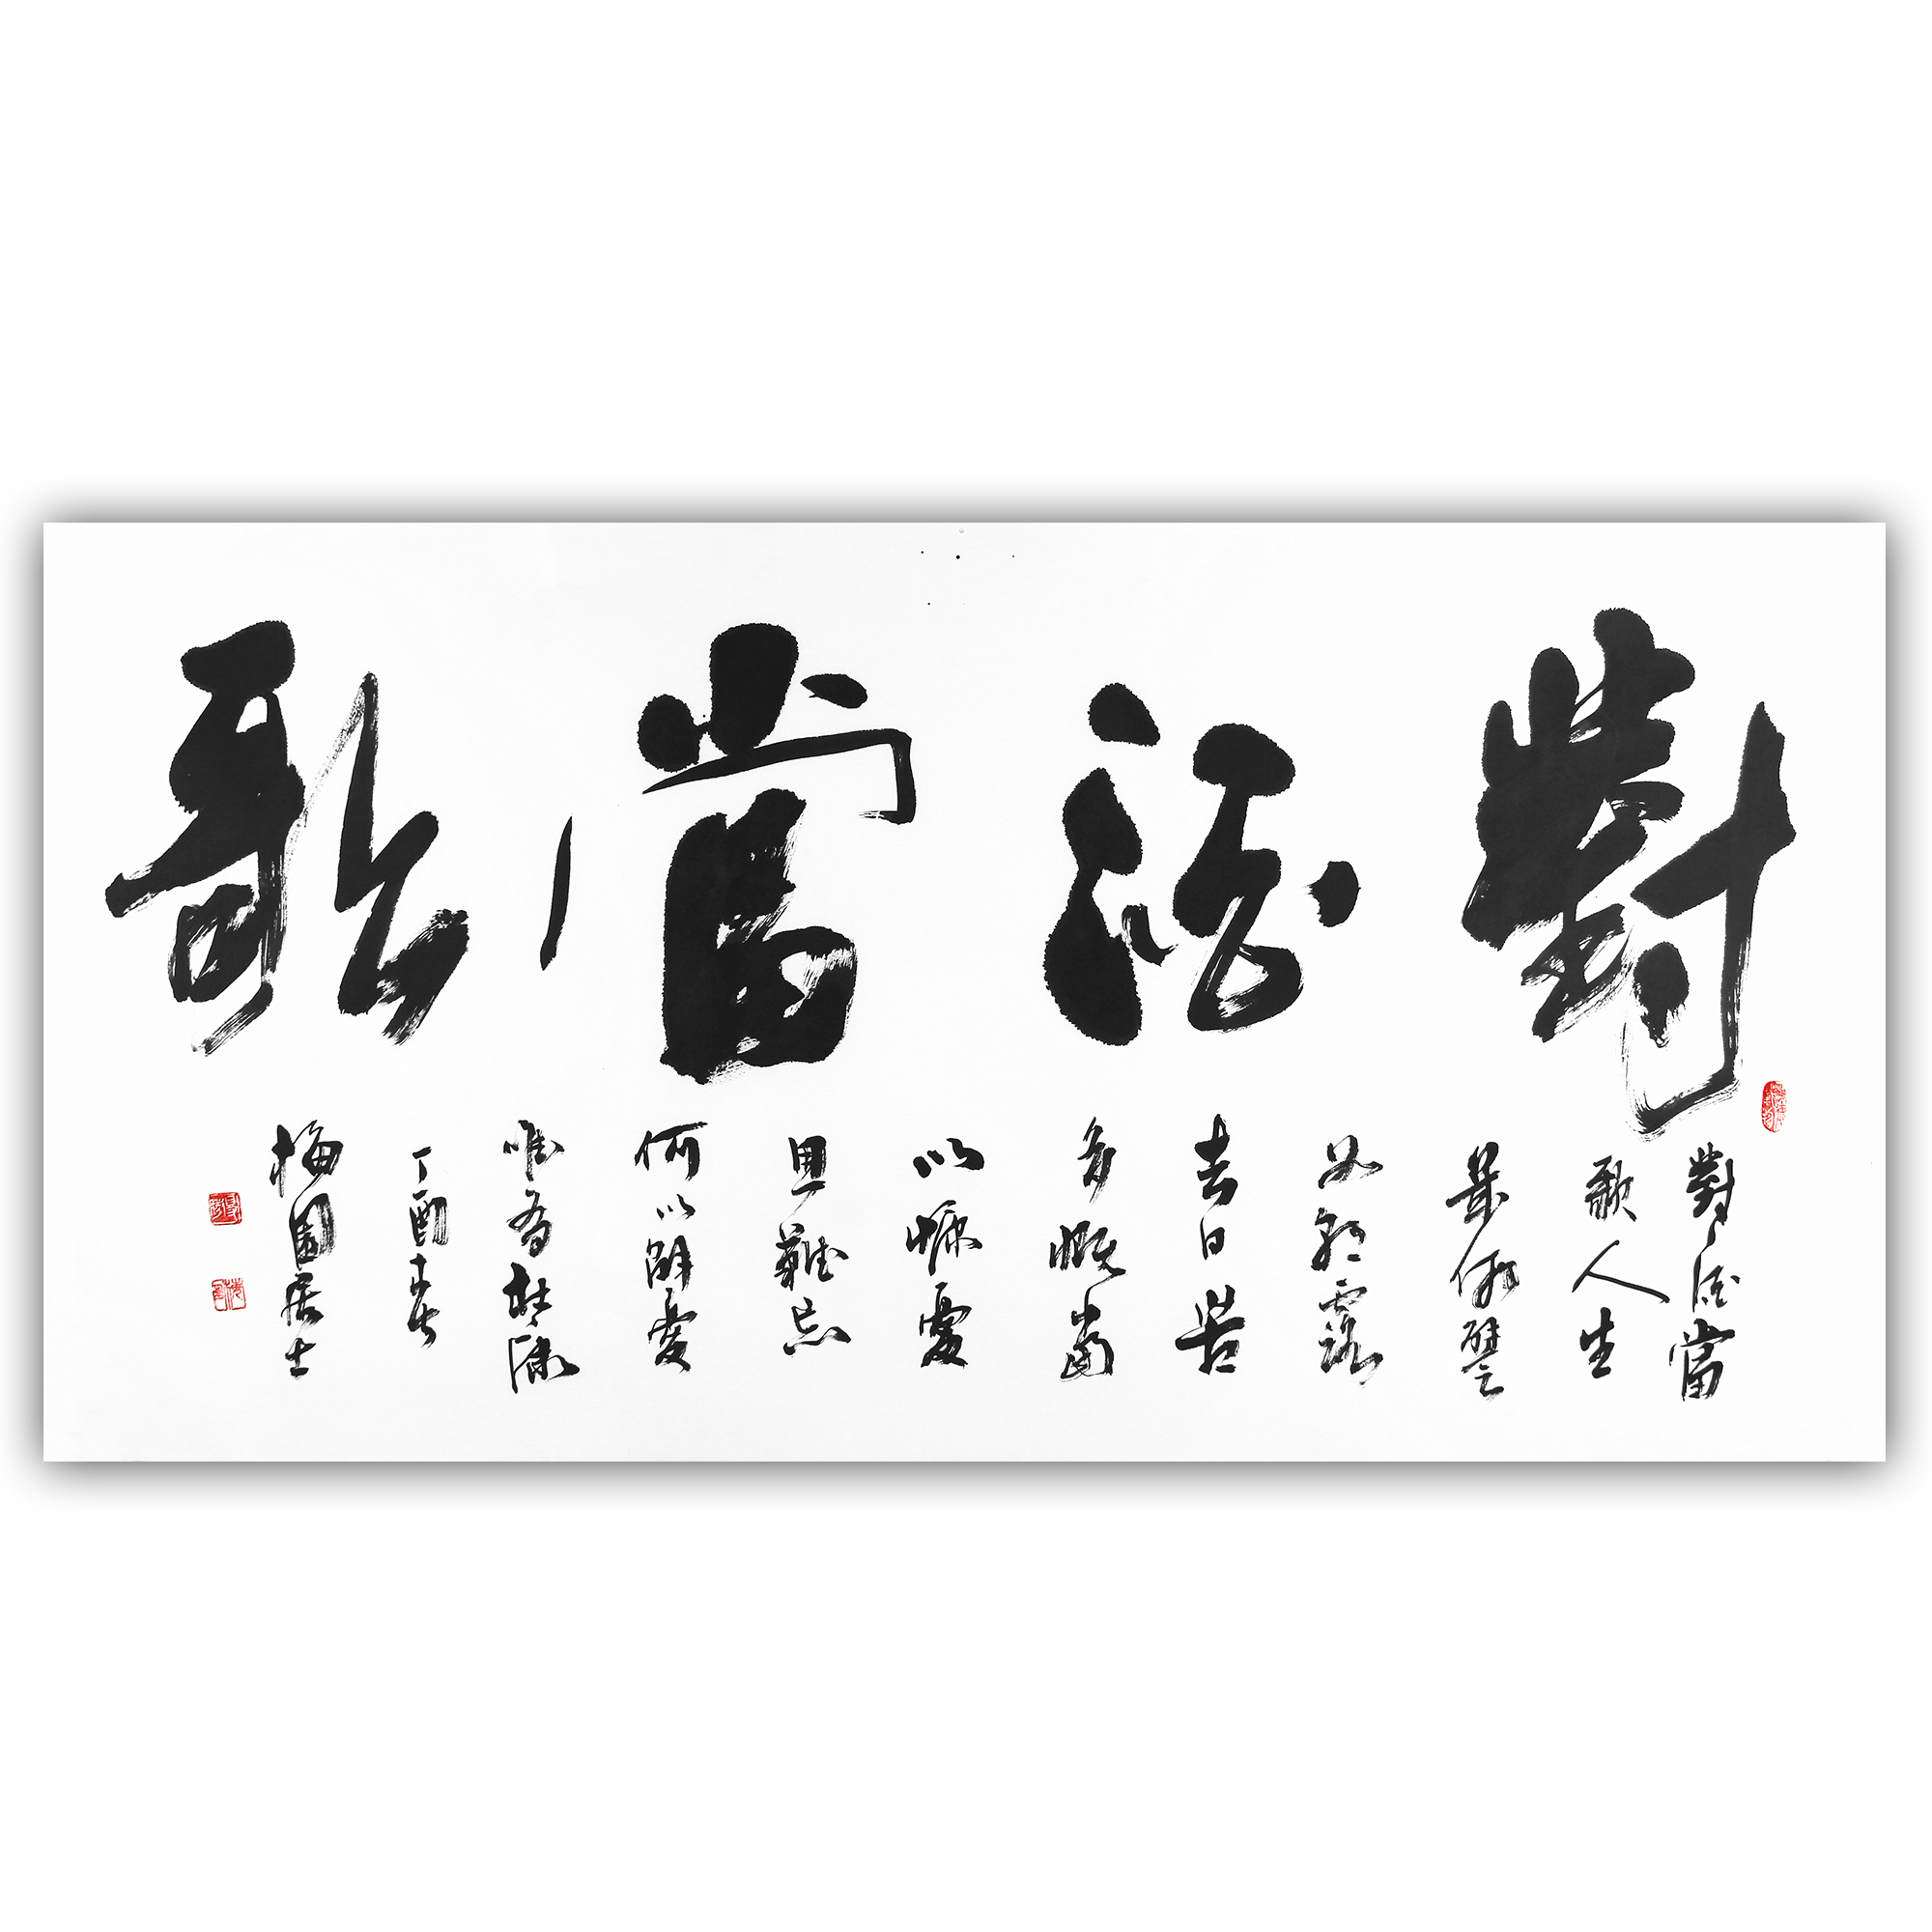 對酒當歌
對酒當
歌人生
幾何譬
如朝露
去日苦
多慨當
以慷憂
思難忘
何以解憂
唯有杜康
丁酉春
梅園居士